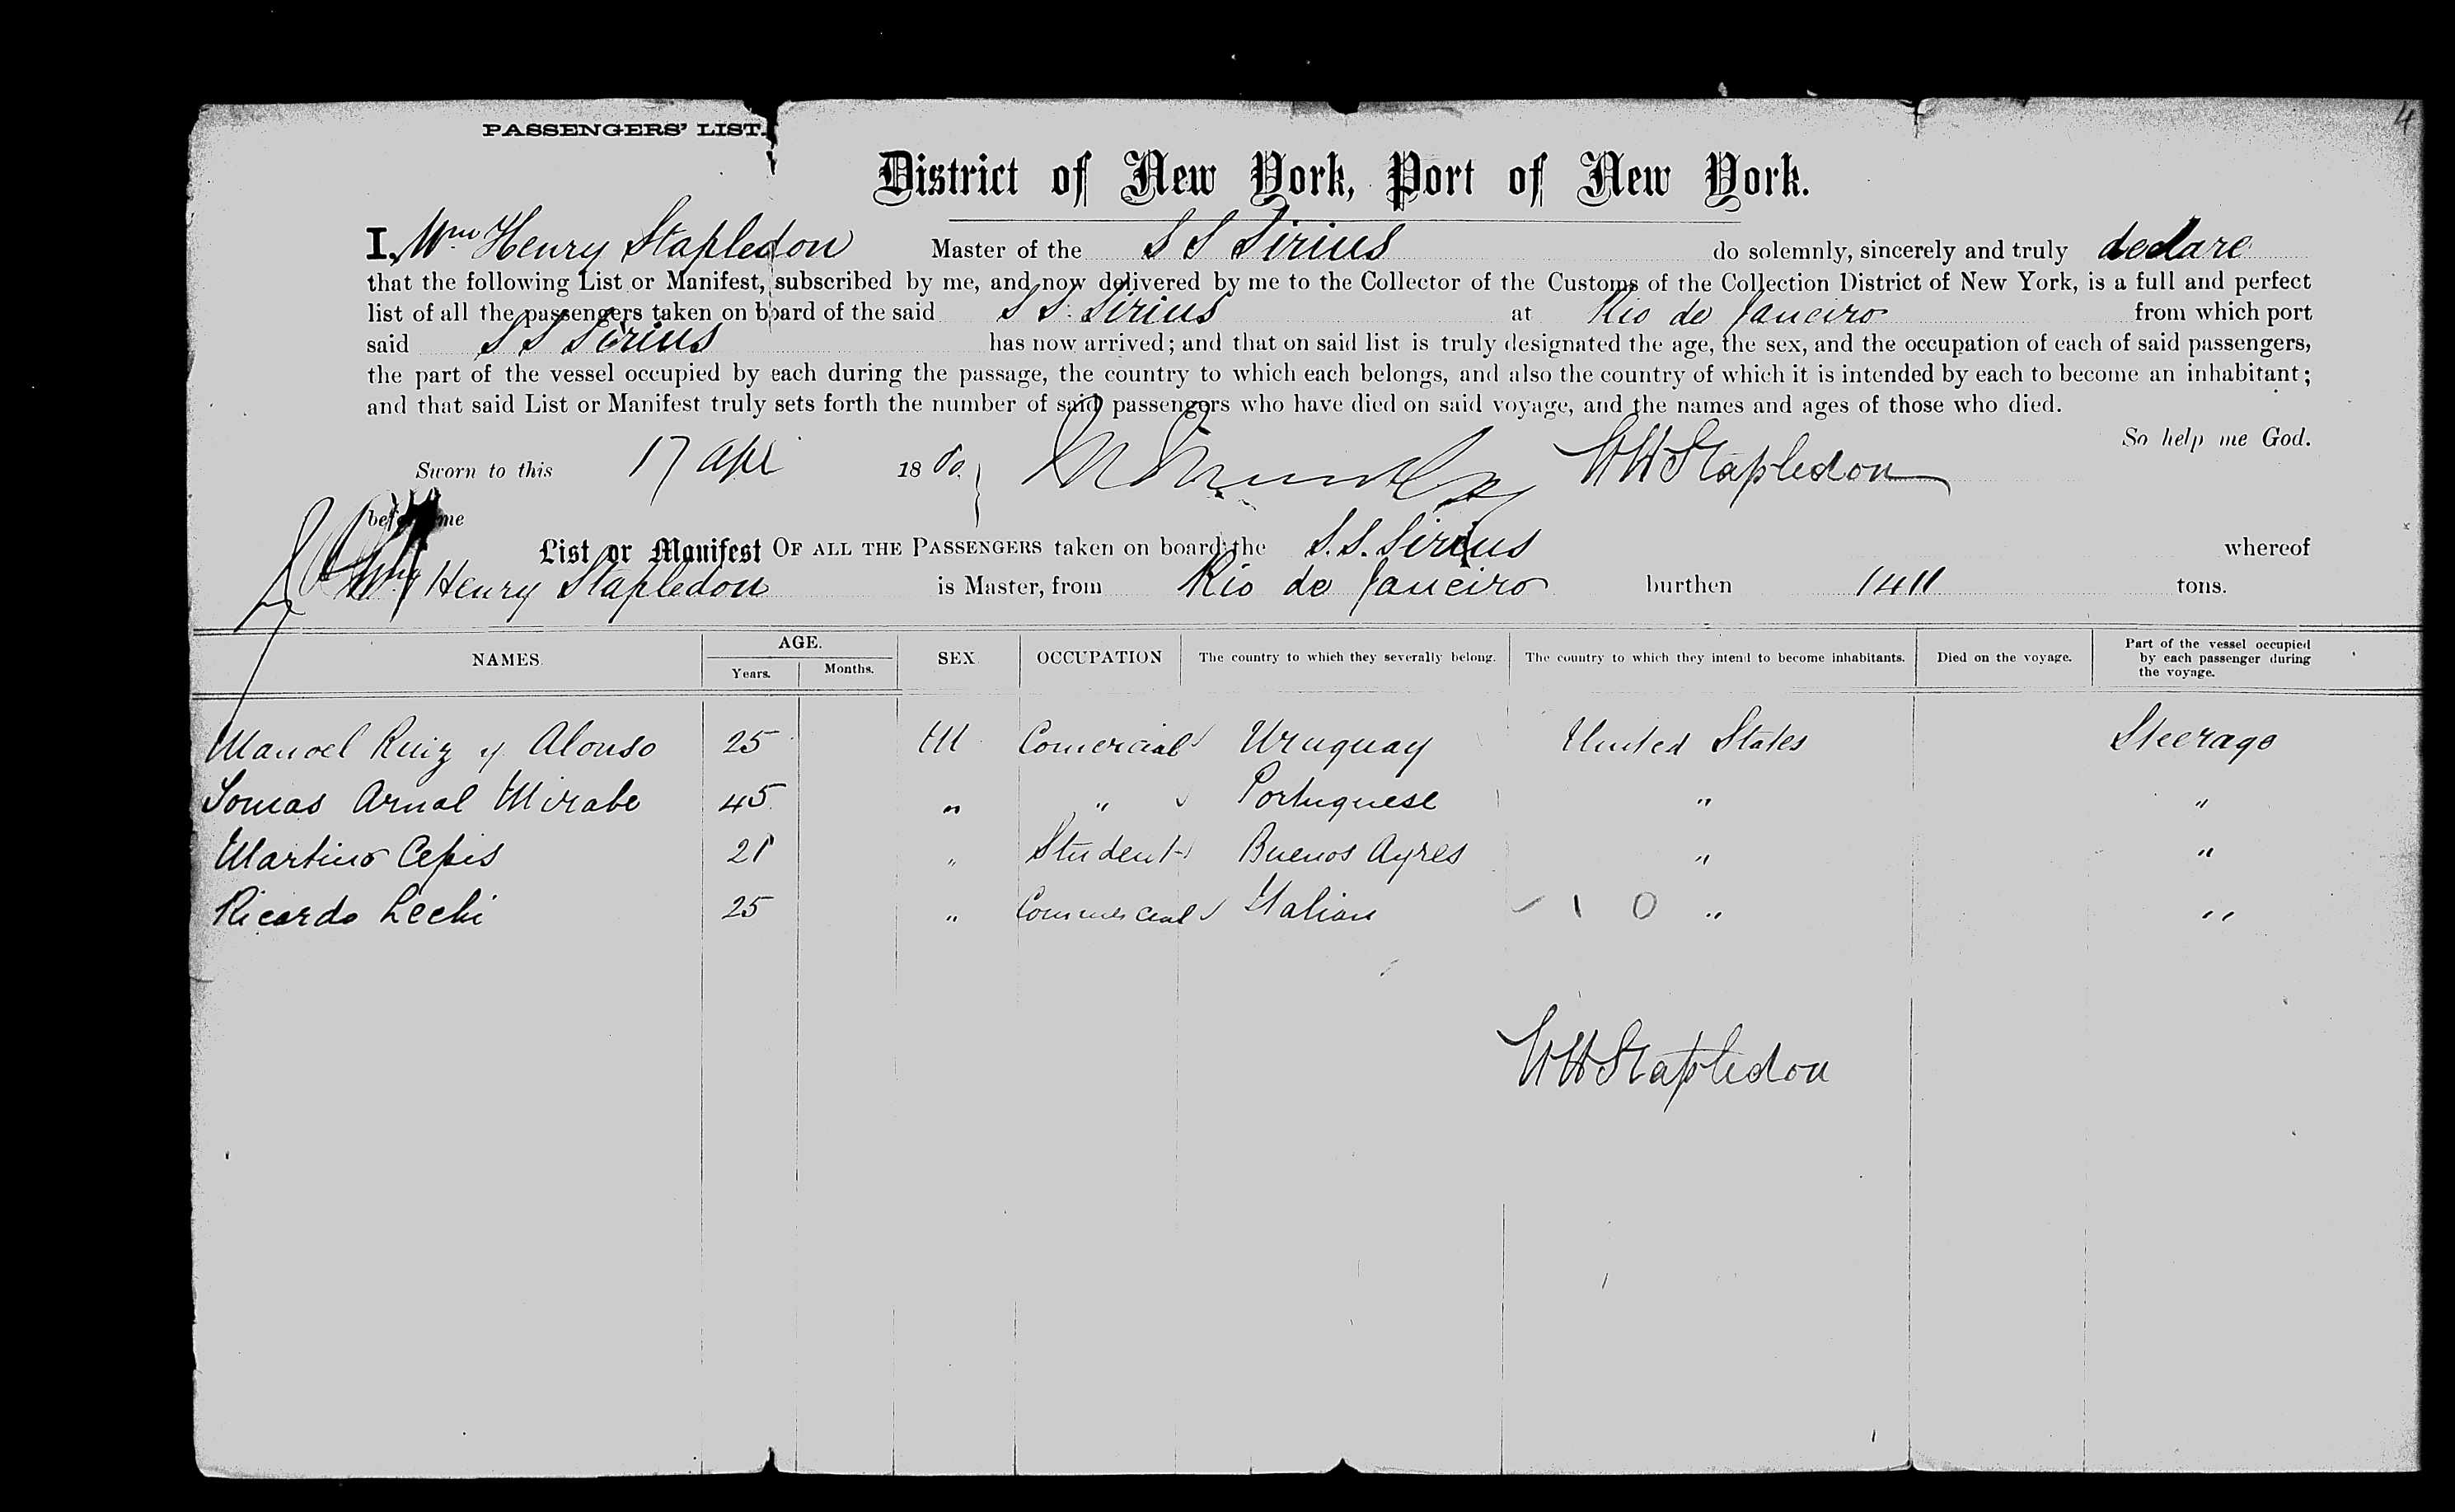 4
PASSENGERS' LIST.
District of New York, Port of New York.
I, Wm Henry Stapledon Master of the S S Sirius do solemnly, sincerely and truly declare
that the following List or Manifest, subscribed by me, and now delivered by me to the Collector of the Customs of the Collection District of New York, is a full and perfect
list of all the passengers taken on board of the said S S. Sirius at Rio de Janeiro from which port
said S S Sirius has now arrived; and that on said list is truly designated the age, the sex, and the occupation of each of said passengers,
the part of the vessel occupied by each during the passage, the country to which each belongs, and also the country of which it is intended by each to become an inhabitant;
and that said List or Manifest truly sets forth the number of said passengers who have died on said voyage, and the names and ages of those who died.
So help me God.
Sworn to this 17 Apl 1880 WHStapledon
before me
List or Manifest OF ALL THE PASSENGERS taken on board the S.S. Sirius whereof
Wm Henry Stapledon is Master, from Rio de Janeiro burthen 1411 tons.
NAMES. AGE. Years. Months. SEX. OCCUPATION The country to which they severally belong. The country to which they intend to become inhabitants. Died on the voyage. Part of the vessel occupied by each passenger during the voyage.
Manoel Ruiz y Alonso 25 M Comercial Uruguay United States Steerage
Tomas Arnal Mirabe 45 " " Portuguese " "
Martino Cepis 21 " Student Buenos Ayres " "
Ricardo Lechi 25 " Commercial Italian 1 0 " "
WHStapledon